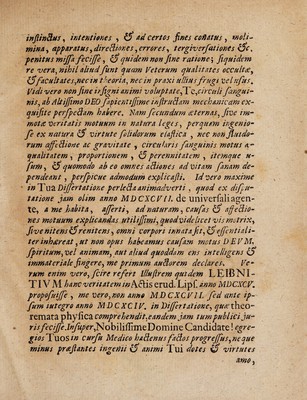 instinctus, intentiones, & ad certos fines conatus, moli-
mina, apparatus, directiones, errores, tergiversationes &c.
penitus missa fecisse, & quidem non sine ratione; siquidem
re vera, nihil aliud sunt quam Veterum qualitates occultæ,
& facultates, nec in theoria, nec in praxi ullius frugi vel usus.
Vidi vero non sine insigni animi voluptate, Te, circuli sangui-
nis, ab Altissimo DEO sapientissime instructam mechanicam ex-
quisite perspectam habere. Nam secundum æternas, sive im-
motæ veritatis motuum in natura leges, perquam ingenio-
se ex natura & virtute solidorum elastica, nec non fluido-
rum affectione ac gravitate, circularis sanguinis motus a-
qualitatem, proportionem, & perennitatem, itemque u-
sum, & quomodo ab eo omnes actiones ad vitam sanam de-
pendeant, perspicue admodum explicasti. Id vero maxime
in Tua Dissertatione perlecta animadverti, quod ex disfu-
tatione jam olim anno MDCXCVII. de universali agen-
te, a me habita, asserti, ad naturam, causas & affectio-
nes motuum explicandas utilissimi, quod videlicet vis motrix,
sive nitens & renitens, omni corpori innata sit, & essentiali-
ter inhæreat, ut non opus habeamus causam motus DEUM,
spiritum, vel animam, aut aliud quoddam ens intelligens &
immateriale fingere, me primum auctorem declares. Ve-
rum enim vero, scire refert Illustrem quidem LEIBNI-
TIUM hanc veritatem in Actis erud. Lips. anno MDCXCV.
proposuisse, me vero, non anno MDCXCVII. sed ante ip-
sum integro anno MDCXCIV, in Dissertatione, quæ theo-
remata physica comprehendit, eandem jam tum publici ju-
ris fecisse. Insuper, Nobilissime Domine Candidate! egre-
gios Tuos in cursu Medico hactenus factos progressus, ne que
minus præstantes ingenii & animi Tui dotes & virtutes
amo,